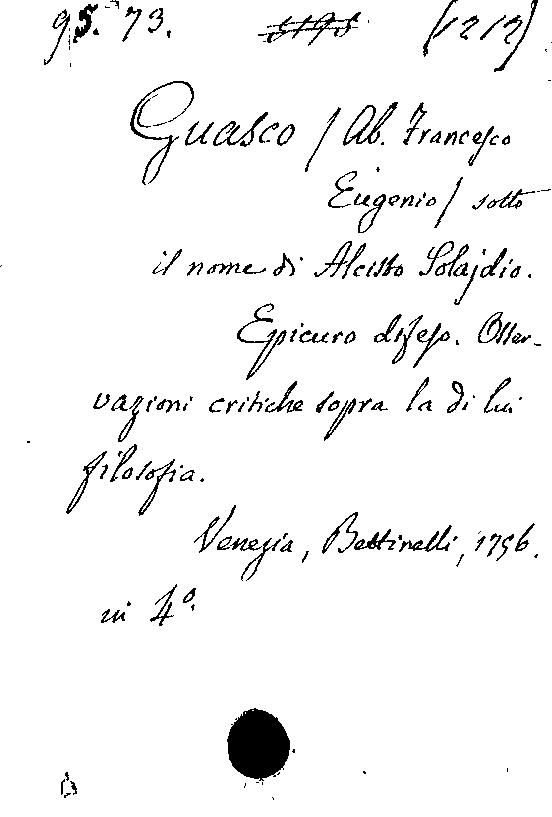 95. 73. 5195 (1212)
Guasco / Ab. Francesco
Eugenio / sotto
il nome di Alcisto Solajdio.
Epicuro difeso. Osser-
vazioni critiche sopra la di lui
filosofia.
Venezia, Bettinelli, 1756.
in 4º.